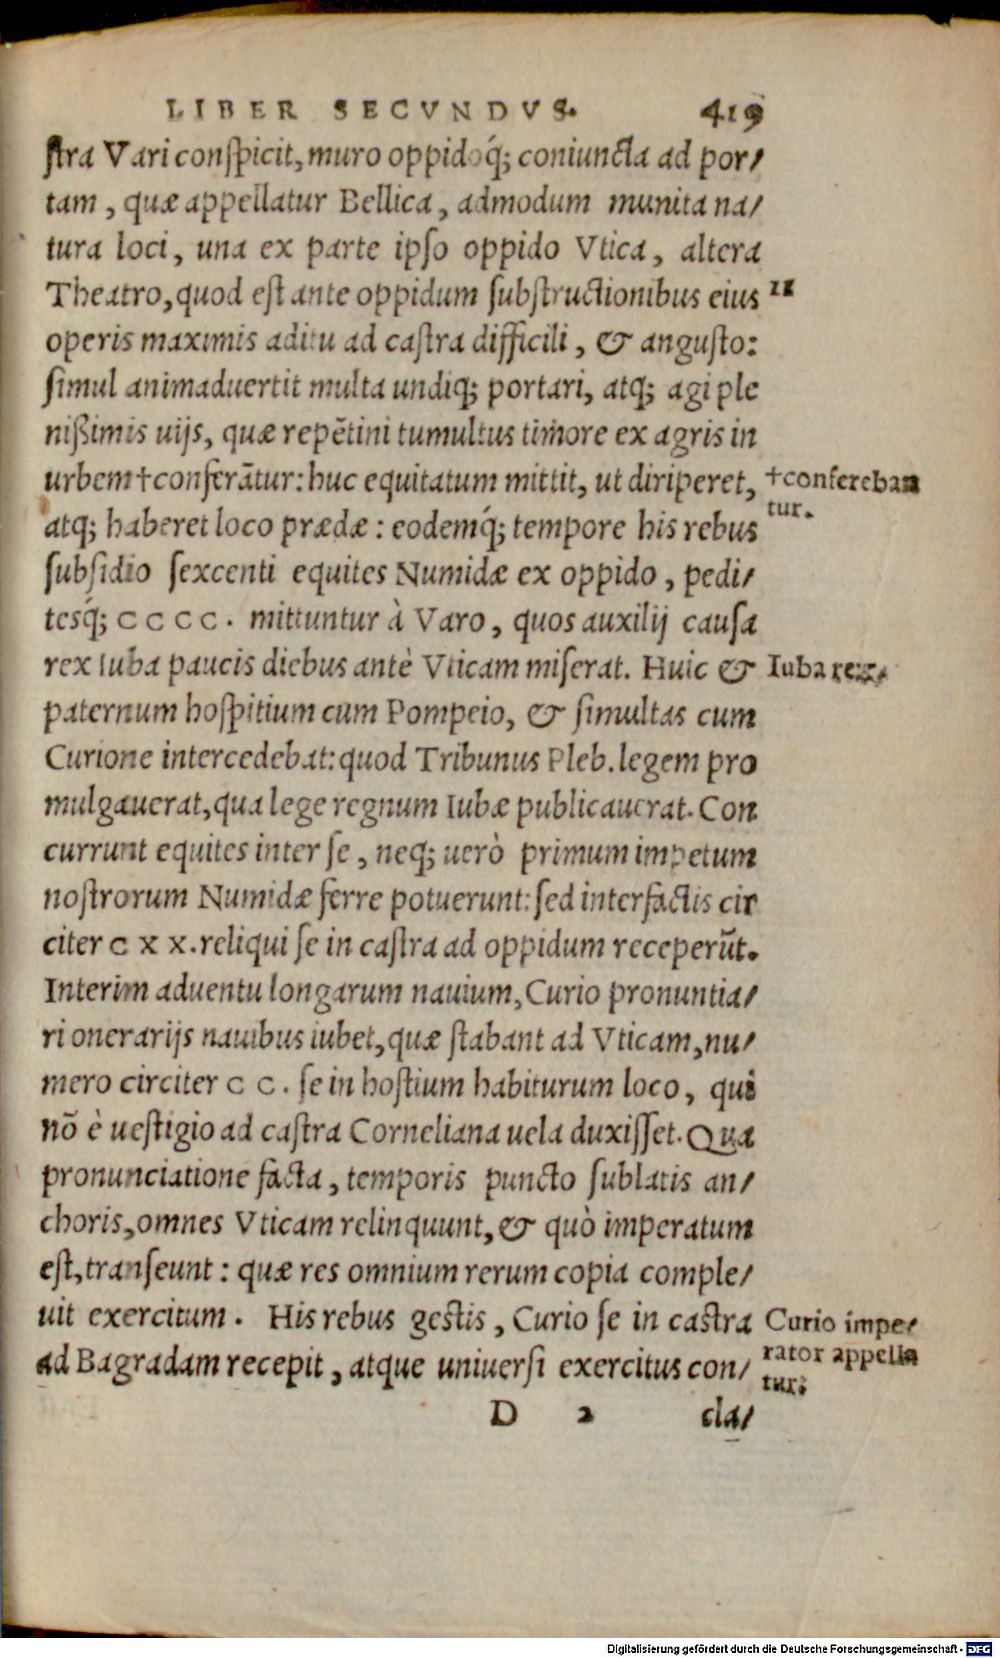 LIBER SECVNDVS. 419
stra Vari conspicit, muro oppidoq́; coniuncta ad por/
tam, quæ appellatur Bellica, admodum munita na/
tura loci, una ex parte ipso oppido Vtica, altera
Theatro, quod est ante oppidum substructionibus eius
operis maximis aditu ad castra difficili, & angusto:
simul animaduertit multa undiq; portari, atq; agi ple
nißimis uijs, quæ repētini tumultus timore ex agris in
urbem †conferātur: huc equitatum mittit, ut diriperet,
atq; haberet loco prædæ: eodemq́; tempore his rebus
subsidio sexcenti equites Numidæ ex oppido, pedi/
tesq́; CCCC. mittuntur à Varo, quos auxilij causa
rex Iuba paucis diebus antè Vticam miserat. Huic &
paternum hospitium cum Pompeio, & simultas cum
Curione intercedebat: quod Tribunus Pleb. legem pro
mulgauerat, qua lege regnum Iubæ publicauerat. Con
currunt equites inter se, neq; uerò primum impetum
nostrorum Numidæ ferre potuerunt: sed interfactis cir
citer CXX. reliqui se in castra ad oppidum receperūt.
Interim aduentu longarum nauium, Curio pronuntia/
ri onerarijs nauibus iubet, quæ stabant ad Vticam, nu/
mero circiter CC. se in hostium habiturum loco, qui
nō è uestigio ad castra Corneliana uela duxisset. Qua
pronunciatione facta, temporis puncto sublatis an/
choris, omnes Vticam relinquunt, & quò imperatum
est, transeunt: quæ res omnium rerum copia comple/
uit exercitum. His rebus gestis, Curio se in castra
ad Bagradam recepit, atque uniuersi exercitus con/
D 2 cla/
11
†confereban
tur.
Iuba rex.
Curio impe/
rator appella
tur.
Digitalisierung gefördert durch die Deutsche Forschungsgemeinschaft - DFG